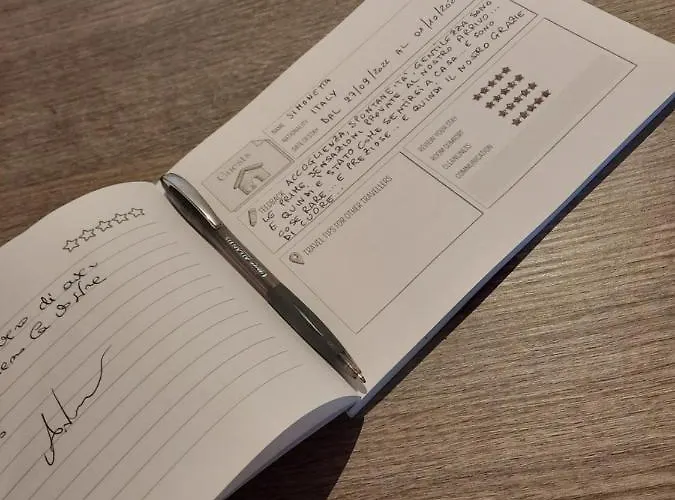 di
NAME SIMONETTA
NATIONALITY ITALY
DATE OF STAY DAL 27/09/2022 AL 01/10/202
Guests
FEEDBACK ACCOGLIENZA, SPONTANEITA', GENTILEZZA SONO
LE PRIME SENSAZIONI PROVATE AL NOSTRO ARRIVO...
E QUINDI E' STATO COME SENTIRSI A CASA... E SONO
COSE RARE... E PREZIOSE... E QUINDI IL NOSTRO GRAZIE
DI CUORE...
TRAVEL TIPS FOR OTHER TRAVELLERS
REVIEW YOUR STAY
ROOM COMFORT
CLEANLINESS
COMMUNICATION